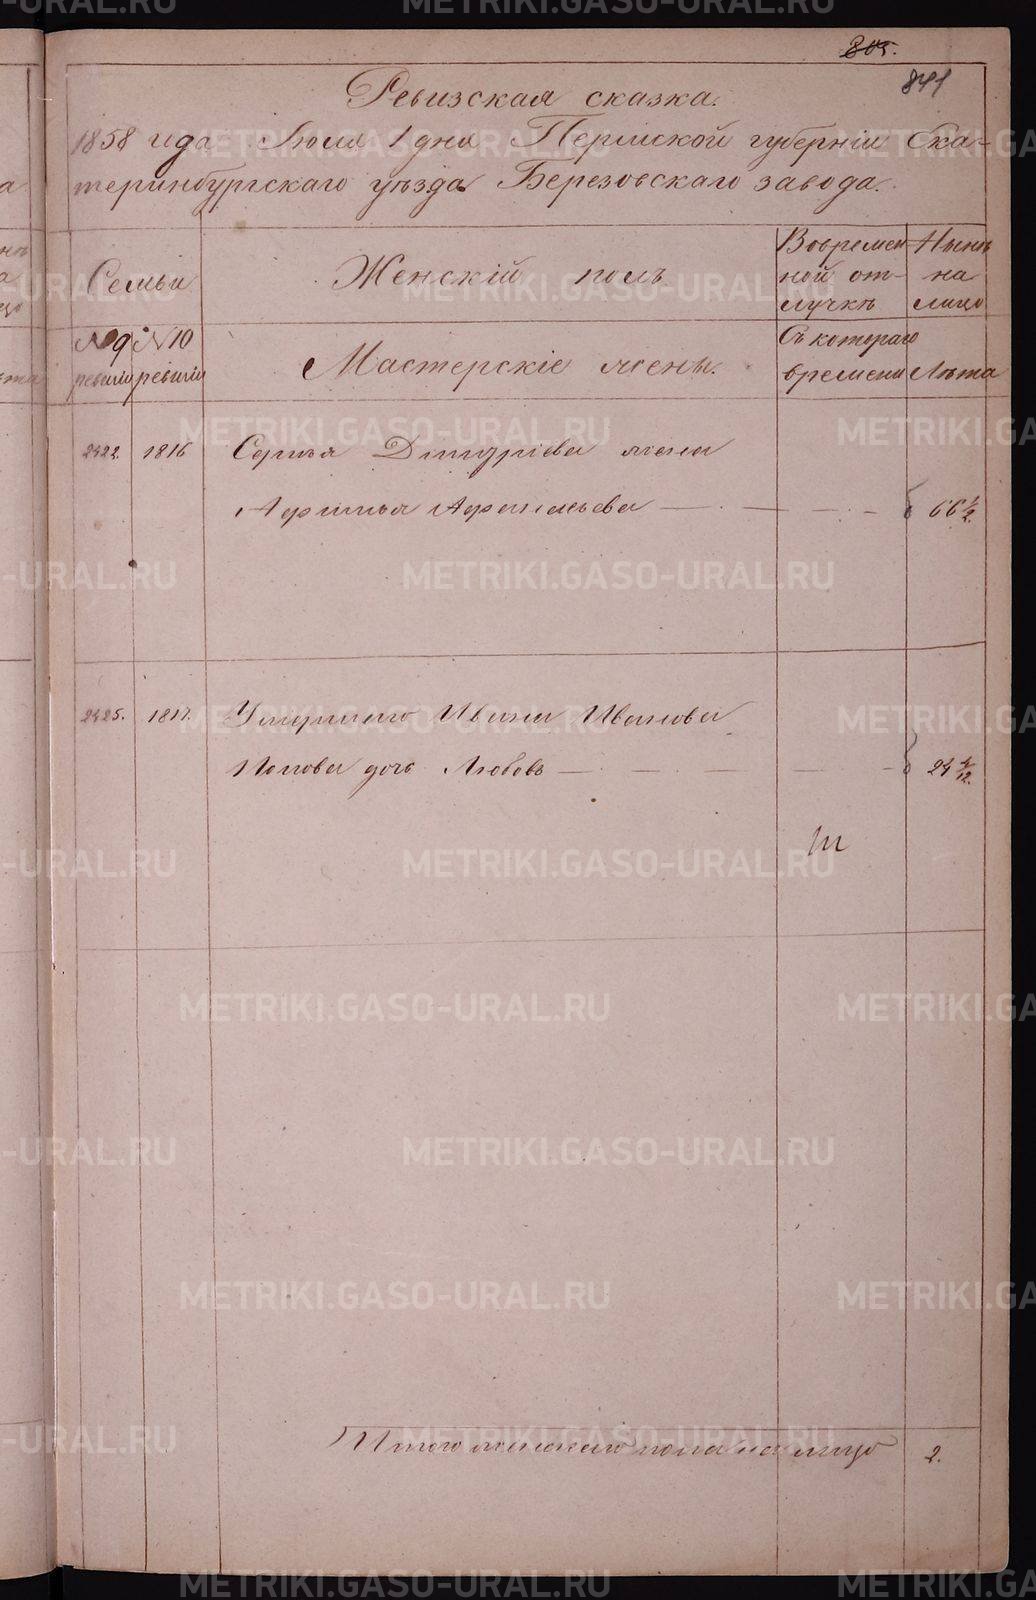 805.
841
Ревизская сказка.
1858 года Июля 1 дня Пермской губернiи Ека-
теринбургскаго уѣзда Березовскаго завода.
Семьи
Женскiй полъ
Вовремен
ной от-
лучкѣ
Нынѣ
на
лицо
№ 9
ревизiи
№ 10
ревизiи
Мастерскiе жены.
Съ котораго
времени
Лѣта
2422. 1816 Сергѣя Дмитрiева жена
Афимья Афанасьева 66 1/2.
2425. 1817. Умершаго Ивана Иванова
Попова дочь Любовь 24 4/12.
Итого женскаго пола на лицо 2.
METRIKI.GASO-URAL.RU